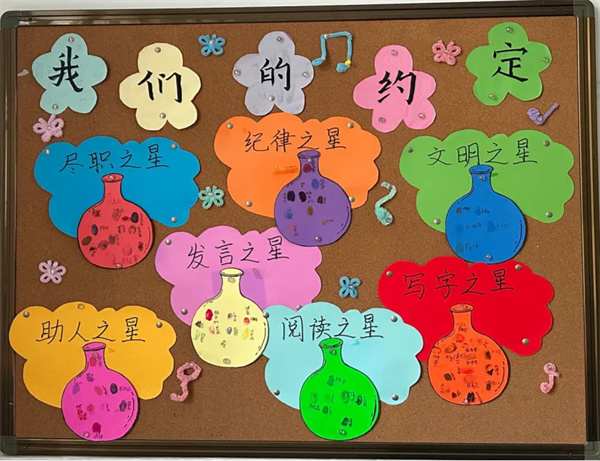 我们的约定
尽职之星
纪律之星
文明之星
发言之星
写字之星
助人之星
阅读之星